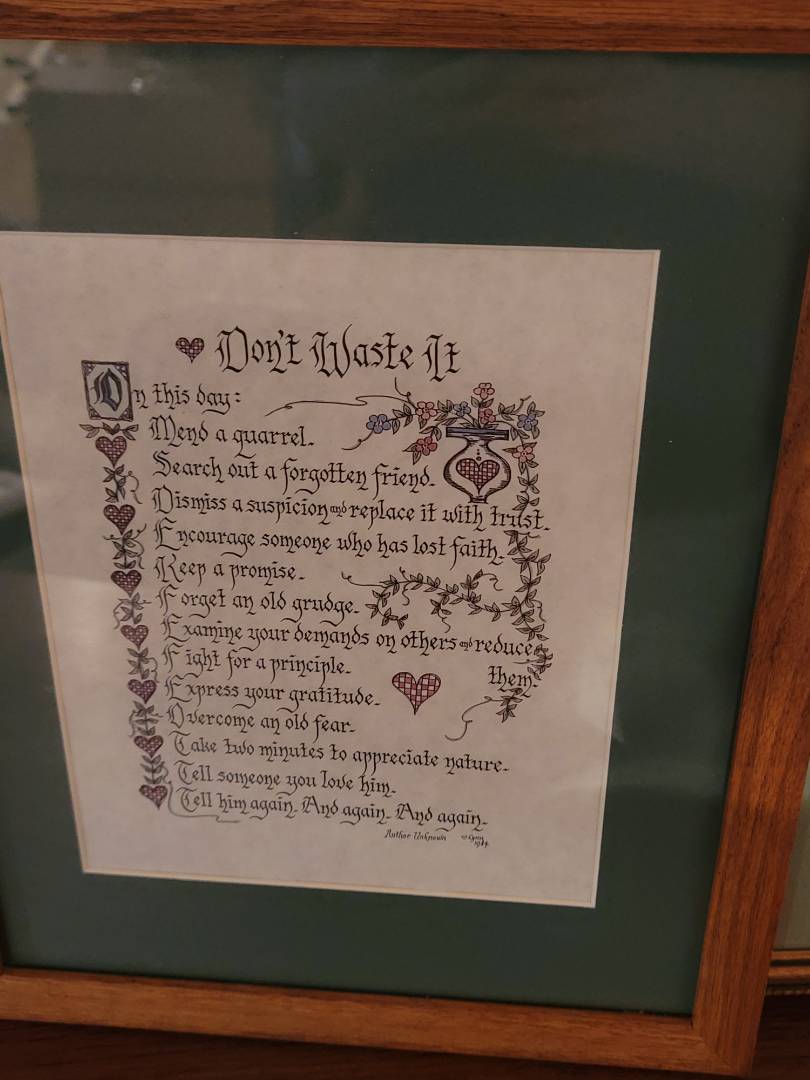 Don't Waste It
On this day:
Mend a quarrel.
Search out a forgotten friend.
Dismiss a suspicion and replace it with trust.
Encourage someone who has lost faith.
Keep a promise.
Forget an old grudge.
Examine your demands on others and reduce
them.
Fight for a principle.
Express your gratitude.
Overcome an old fear.
Take two minutes to appreciate nature.
Tell someone you love him.
Tell him again. And again. And again.
Author Unknown